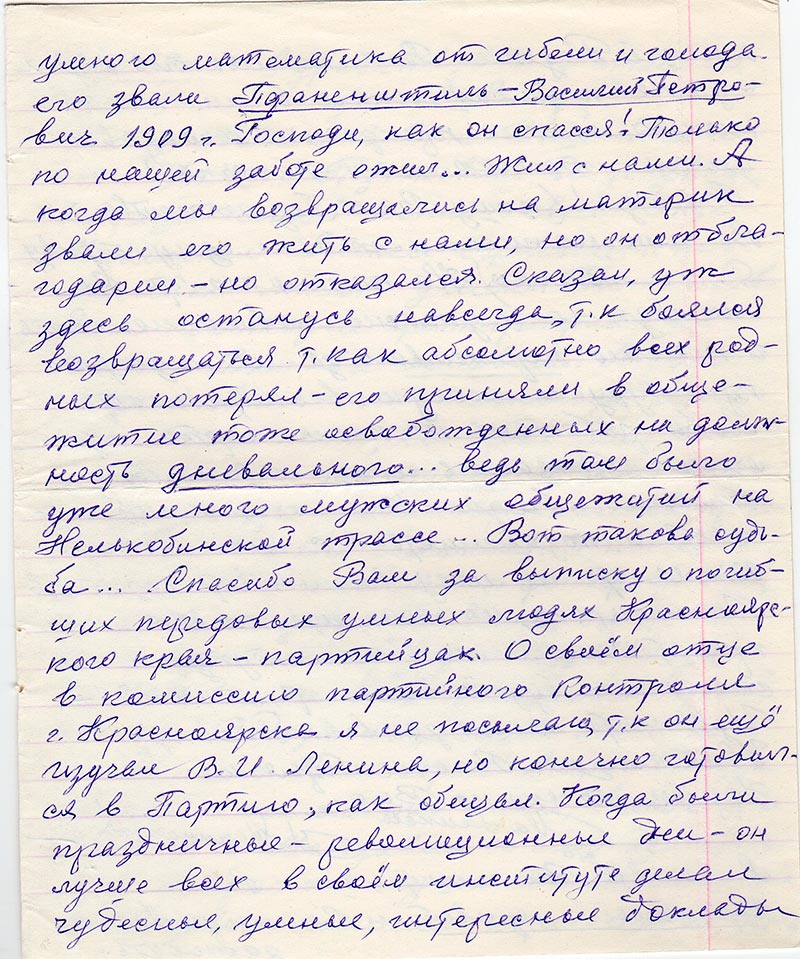 умного математика от гибели и голода.
его звали Пфаненштиль – Василий Петро-
вич 1909 г. Господи, как он спасся! Только
по нашей заботе ожил... Жил с нами. А
когда мы возвращались на материк
звали его жить с нами, но он отбла-
годарил – но отказался. Сказал, уж
здесь останусь навсегда, т.к боялся
возвращаться т.как абсолютно всех род-
ных потерял – его приняли в обще-
житие тоже освобожденных на долж-
ность дневального... ведь там было
уже много мужских общежитий на
Нелькобинской трассе... Вот такова судь-
ба... Спасибо Вам за выписку о погиб-
ших передовых умных людях Красноярс-
кого края – партийцах. О своём отце
в комиссию партийного Контроля
г. Красноярска я не посылаю т.к он ещё
изучал В.И. Ленина, но конечно готовил-
ся в Партию, как обещал. Когда были
праздничные – революционные дни – он
лучше всех в своём институте делал
чудесные, умные, интересные доклады